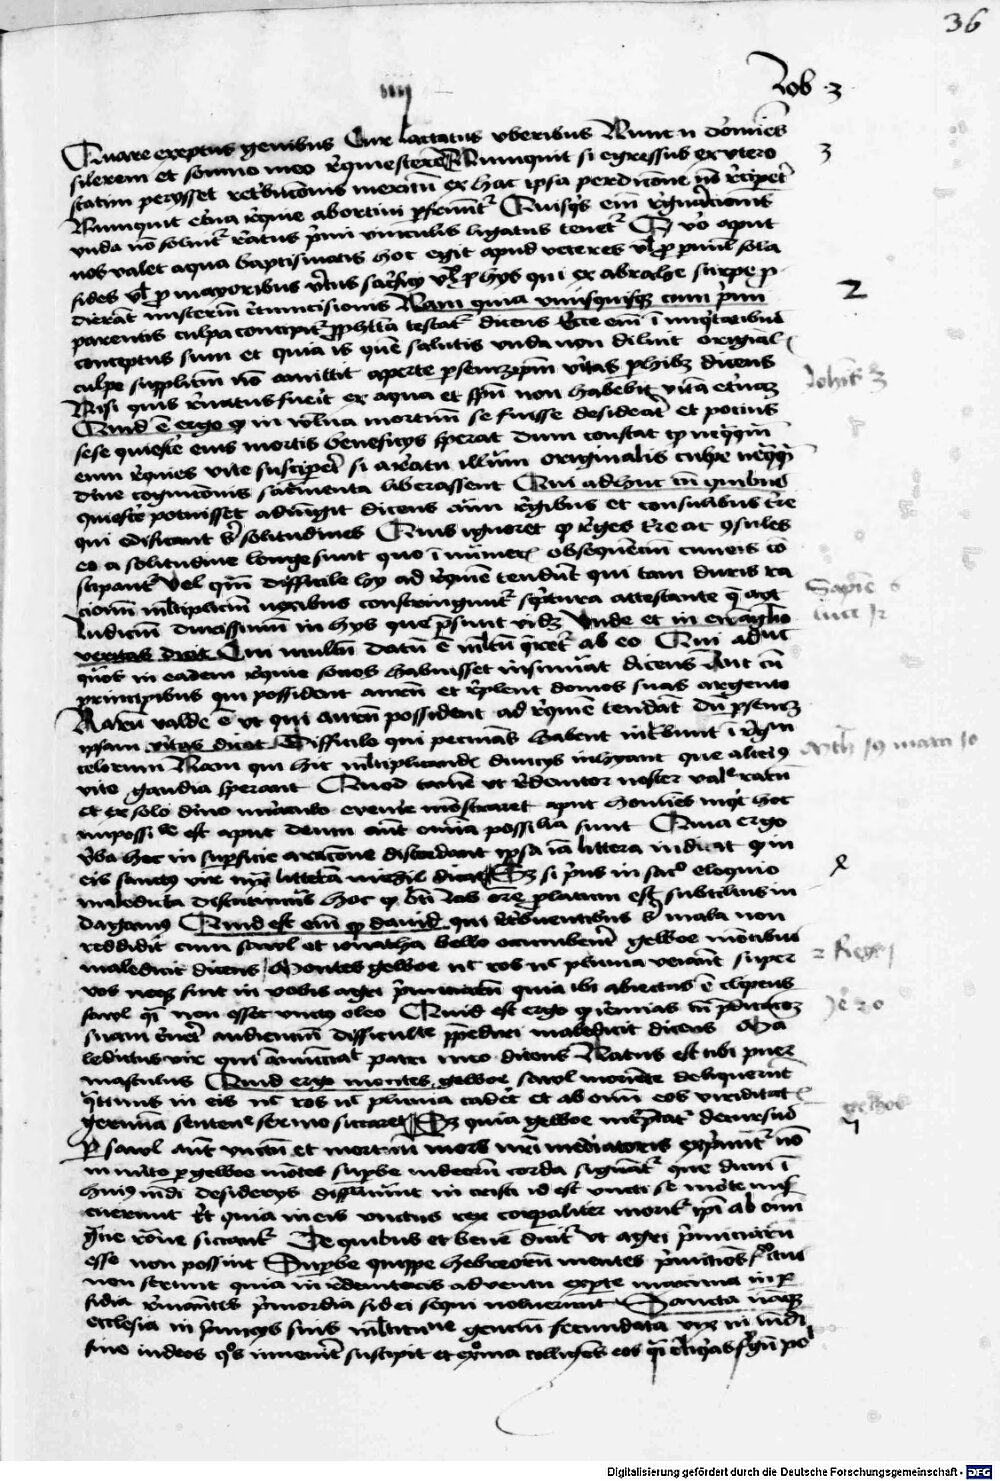 36
iiij
Iob 3
Quare exceptus genibus Cur lactatus uberibus Nunc n dormies
silerem et sompno meo requiescerem Numquit si egressus ex utero
3
statim perysset retribucionis meritum ex hac ipsa perdicione non reciperet
Numquit eterna requie abortivi perfruuntur Quisquis enim regenerationis
unda non solvitur reatus primi vinculis ligatus tenetur Quod vero aput
nos valet aqua baptismatis hoc egit apud veteres vel pro parvulis sola
fides vel pro mayoribus virtus sacrificii vel pro hys qui ex abrahe stirpe pro
dierant misterium circumcisionis Nam quia unusquisque cum primi
2
parentis culpa concipitur propheta testatur dicens Ecce enim in iniquitatibus
conceptus sum et quia is quem salutis unda non diluit originalis
culpe supplicium non amittit aperte per semetipsam veritas perhibet dicens
Johis 3
Nisi quis renatus fuerit ex aqua et spiritu non habebit vitam eternam
Quid est ergo quod in vulva mortuum se fuisse desiderat et pocius
sese quiescere eius mortis beneficys sperat dum constat quod nequaquam
eum requies vite susciperet si a reatu illum originalis culpe nequaquam
divine cognicionis sacramenta liberassent Qui adhuc cum quibus
quiescere potuisset adiungit dicens cum regibus et consulibus terre
qui edificant sibi solitudines Quis ignoret quod reges terre ac consules
eo a solitudine longe sunt quo in numeris obsequencium cuneis con
stipantur Vel quam difficile hy ad requiem tendunt qui tam duris ra
cionum multiplicium nexibus constringuntur scriptura attestante que ait
Sapien 6
Iudicium durissimum in hys que presunt videt Unde et in ewangelio
luce 12
veritas dicit Cui multum datum est multum queretur ab eo Qui adhuc
quos in eadem requie socios habuisset insinuat dicens Aut cum
principibus qui possident aurum et replent domos suas argento
Rarum valde est ut qui aurum possident ad requiem tendant dum per semet
ipsam veritas dicat Difficile qui pecunias habent intrabunt in regnum
Mth 19 marci 10
celorum Nam qui hic multiplicandis divicys inhyant que alterius
vite gaudia sperant Quod tamen ut redemptor noster valde rarum
et ex solo divino miraculo evenire monstraret aput homines inquit hoc
impossibile est aput deum autem omnia possibilia sunt Quia ergo
verba hec in superficie a racione discordant ipsa iam littera indicat quod in
eis sanctus vir iuxta litteram nichil dicat Sed si prius in sacro eloquio
maledicta discutimus hoc quod beati Iob ore prolatum est subtilius in
dagamus Quid est enim quod david qui retribuentibus sibi mala non
reddidit cum sawl et ionatha bello occumberent gelboe montibus
maledicit dicens Montes gelboe nec ros nec pluvia veniant super
2 Regum 1
vos neque sint in vobis agri primiciarum quia ibi abiectus est clipeus
sawl quasi non esset unctus oleo Quid est ergo quod ieremias cum predicacionem
Jer 20
suam cerneret audiencium difficultate prepediri maledicit dicens Ma
ledictus vir qui annunciat patri meo dicens Natus est tibi puer
masculus Quid ergo montes gelboe sawl moriente deliquerunt
quatinus in eis nec ros nec pluvia caderet et ab omni eos viriditatis
germina sentencie sermo siccaret Sed quia gelboe interpretatur decursus
gelboe
Per sawl autem unctum et mortuum mors nostri mediatoris exprimitur non
in merito per gelboe montes superbe iudeorum corda signantur que dum in
huius mundi desiderys diffluunt in cristi id est uncti se morte mis
cuerunt Et quia in eis unctus rex corporaliter moritur ipsi ab omni
gracie rore siccantur De quibus et bene dicitur ut agri primiciarum
esse non possint Superbe quippe hebreorum mentes primitivos fructus
non ferunt quia in redemptoris adventu ex parte maxima in per
fidia remanentes primordia fidei sequi noluerunt Sancta namque
ecclesia in primicys suis multitudine gencium fecundata vix in mundi
fine iudeos quos invenerit suscipit et extrema colligens eos quasi reliquias frugum po
Digitalisierung gefördert durch die Deutsche Forschungsgemeinschaft - DFG